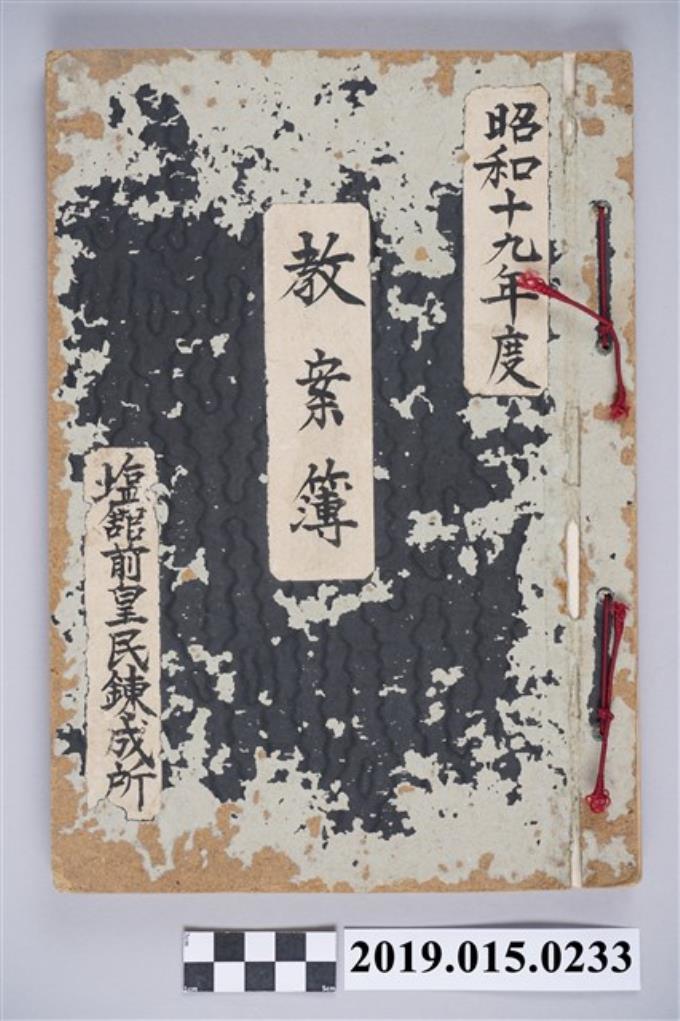 昭和十九年度
教案簿
塩館前皇民錬成所
2019.015.0233